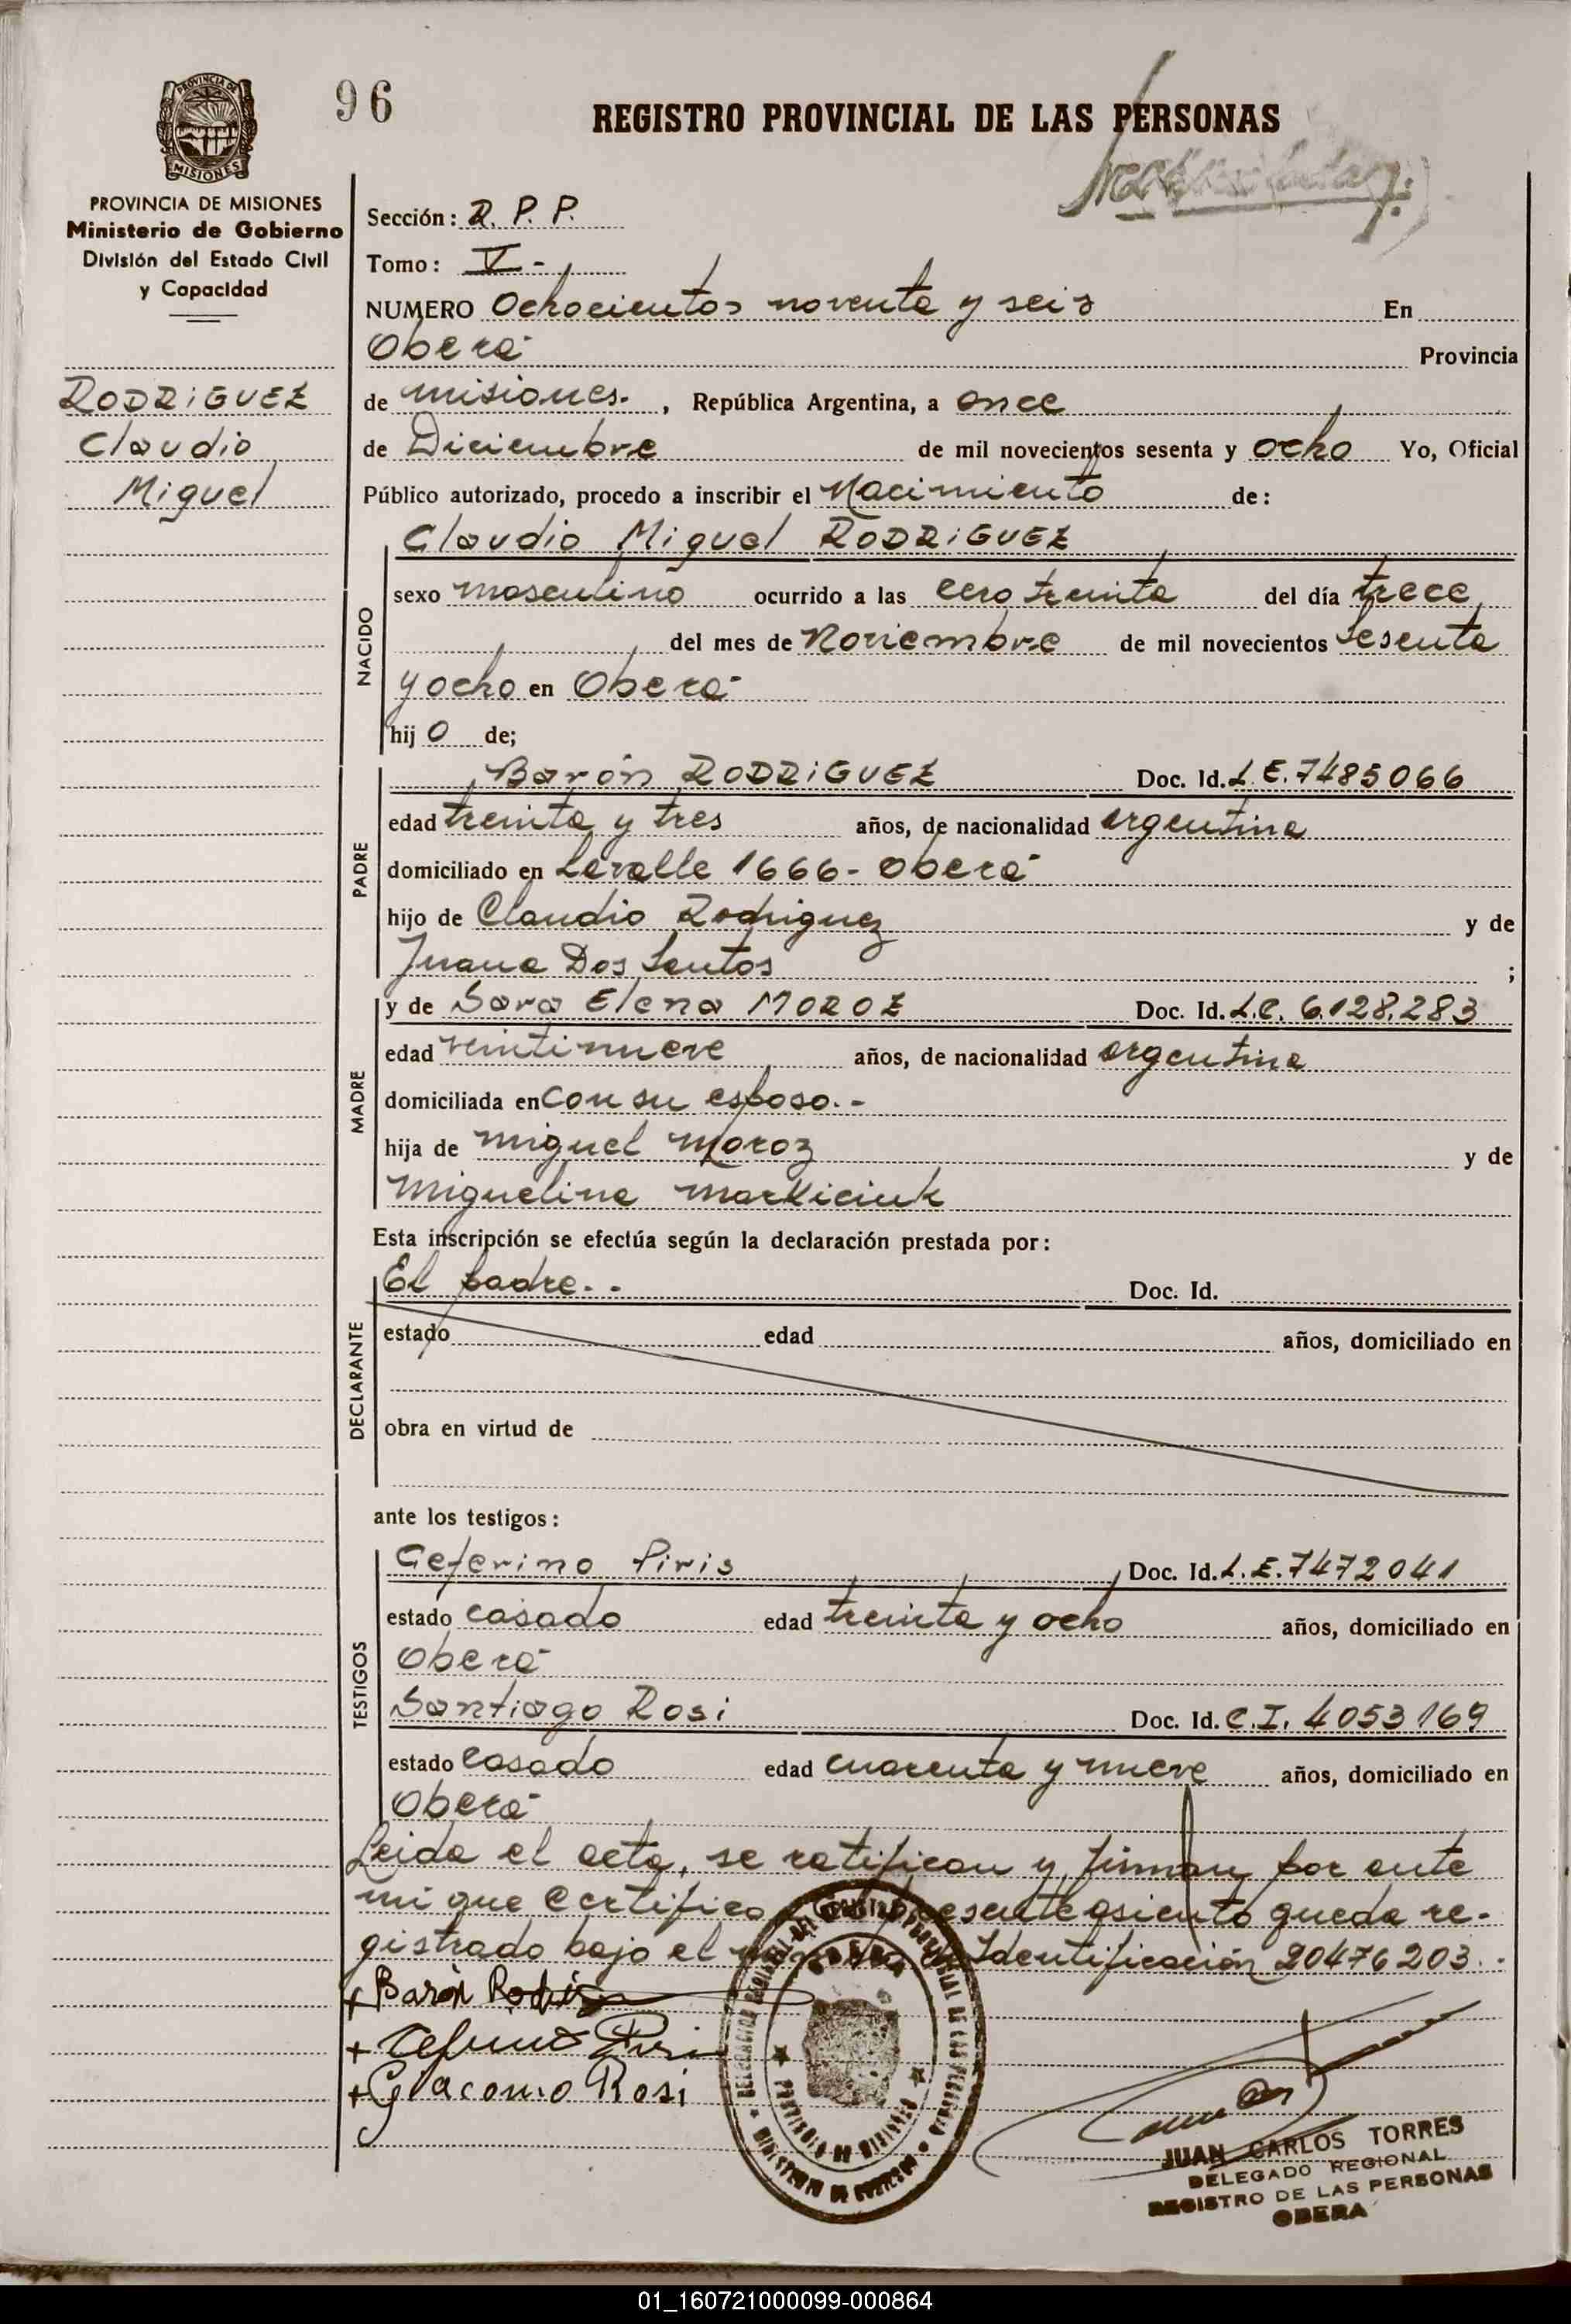 PROVINCIA DE
MISIONES
96
REGISTRO PROVINCIAL DE LAS PERSONAS
PROVINCIA DE MISIONES
Ministerio de Gobierno
División del Estado Civil
y Capacidad
RODRiGUEZ
Claudio
Miguel
Sección: R. P. P.
Tomo: V -
NUMERO Ochocientos noventa y seis En
Oberá Provincia
de misiones. , República Argentina, a once
de Diciembre de mil novecientos sesenta y ocho Yo, Oficial
Público autorizado, procedo a inscribir el Nacimiento de:
NACIDO
Claudio Miguel RODRiGUEZ
sexo masculino ocurrido a las cero treinta del día trece
del mes de Noviembre de mil novecientos sesenta
y ocho en Oberá
hij o de;
PADRE
Barón RODRiGUEZ Doc. Id. L.E. 7485066
edad treinta y tres años, de nacionalidad argentina
domiciliado en Lavalle 1666 - Oberá
hijo de Claudio Rodriguez y de
Juana Dos Santos ;
MADRE
y de Sara Elena MOROZ Doc. Id. L.C. 6.128.283
edad veintinueve años, de nacionalidad argentina
domiciliada en con su esposo. -
hija de Miguel Moroz y de
Miguelina Markiciuk
Esta inscripción se efectúa según la declaración prestada por:
DECLARANTE
El padre. - Doc. Id.
estado edad años, domiciliado en
obra en virtud de
ante los testigos:
TESTIGOS
Ceferino Piris Doc. Id. L.E. 7472041
estado casado edad treinta y ocho años, domiciliado en
Oberá
Santiago Rosi Doc. Id. C.I. 4053169
estado casado edad cuarenta y nueve años, domiciliado en
Oberá
Leida el acta, se ratifican y firman por ante
mi que Certifico presente asiento queda re-
gistrado bajo el Identificación 20476203. -
+ Barón Rodriguez
+ Ceferino Piris
+ Giacomo Rosi
DELEGACION REGIONAL DEL REGISTRO PROVINCIAL DE LAS PERSONAS
OBERA
PROVINCIA DE MISIONES
MINISTERIO DE GOBIERNO
JUAN CARLOS TORRES
DELEGADO REGIONAL
REGISTRO DE LAS PERSONAS
OBERA
01_160721000099-000864